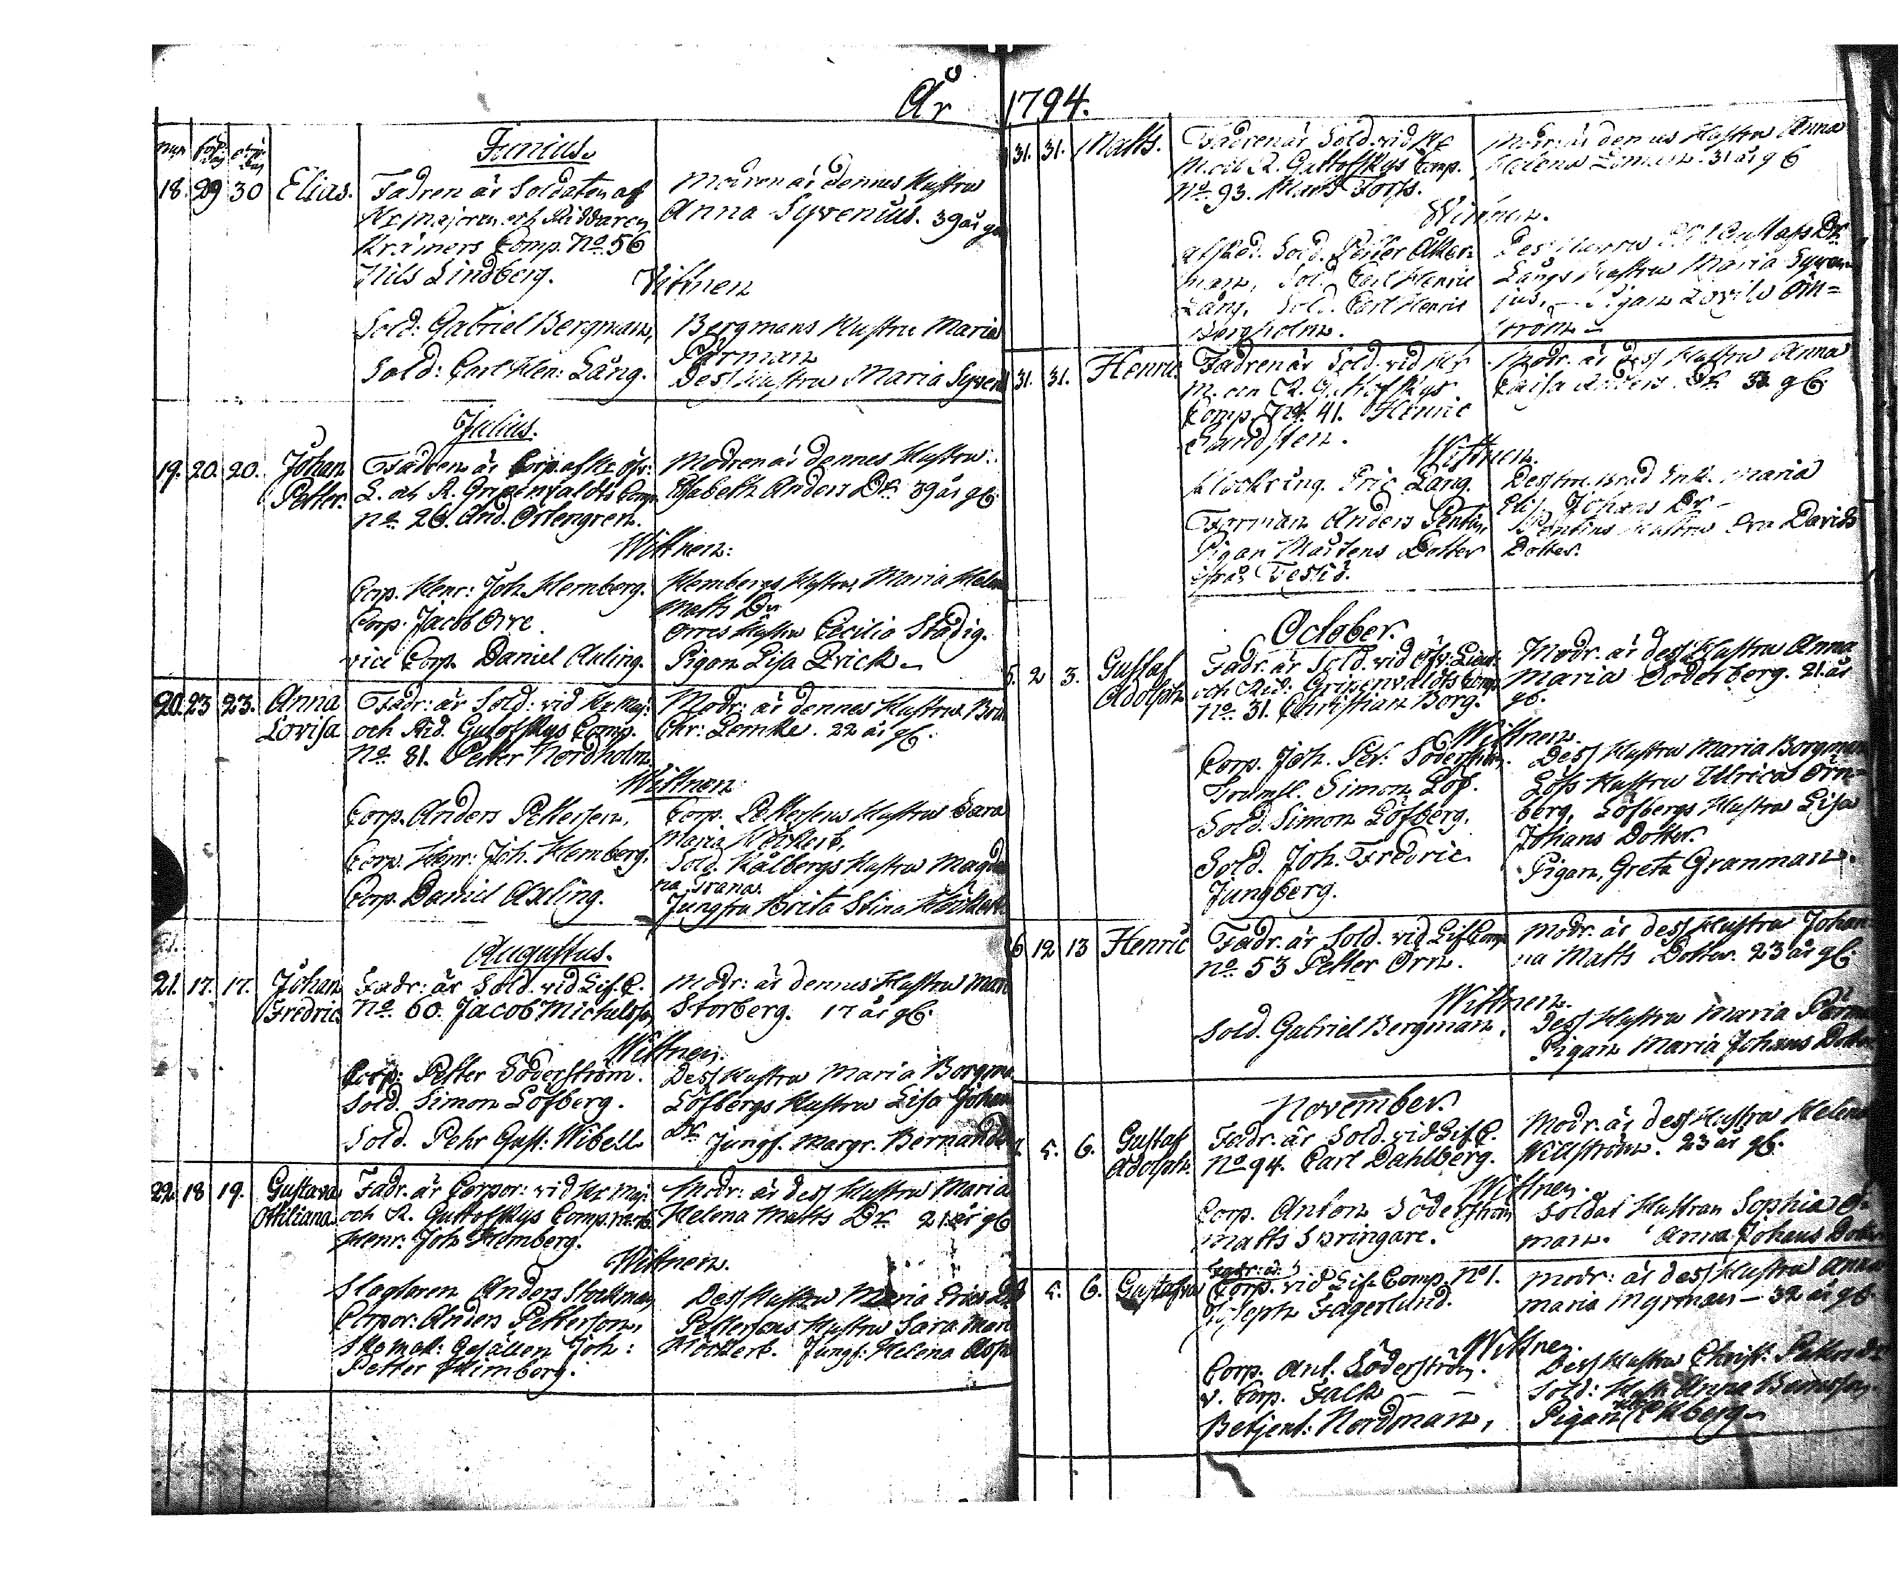 År 1794.
Junius.
18. 29 30 Elias. Fadren är Soldaten af
Hr Majoren och Riddaren
Krämers Comp. No 56
Nils Lindberg.
Modren är dennes Hustru
Anna Syrenius. 39 år
Vittnen
Sold: Gabriel Bergman,
Sold: Carl Hen: Lång.
Bergmans Hustru Maria
Pärman
Dess Hustru Maria Syren
Julius.
19. 20. 20. Johan
Petter.
Fadren är Corp. af Hr Öfv:
L. och R. Gripenvaldts Comp.
No 26. And. Östengren.
Modren är dennes Hustru
Elisabeth Anders Dr. 39 år gb.
Wittnen:
Corp. Henr: Joh. Hemberg.
Corp. Jacob Orre.
vice Corp. Daniel Axling.
Hembergs Hustru Maria Helena
Matts Dr
Orres Hustru Cecilia Städig.
Pigan Lisa Brick
20. 23 23. Anna
Lovisa
Fadr: är Sold: vid Hr Maj:
och Rid. Gutofskys Comp.
No 81. Petter Nordholm
Modr: är dennes Hustru
Chr: Lemke. 22 år gb.
Wittnen
Corp. Anders Pettersen,
Corp. Henr: Joh. Hemberg.
Corp. Daniel Axling.
Corp. Pettersens Hustru Sara
Maria
Sold. Kålbergs Hustru
na Trana.
Jungfru Brita Stina
Augustus.
21. 17. 17. Johan
Fredric
Fadr: är Sold. vid Lif. C.
No 60. Jacob Michelsso
Modr: är dennes Hustru
Storberg. 17 år gb.
Wittnen.
Corp: Petter Söderström.
Sold. Simon Löfberg.
Sold. Pehr Gust. Wibell
Dess Hustru Maria Borgma
Löfbergs Hustru Lisa Johan
Dr. Jungf. Margr. Bernand
22. 18 19. Gustava
Ottiliana
Fadr. är Corpor: vid Hr Maj:
och R. Guttofskys Comp.
Henr. Joh Hemberg.
Modr: är dess Hustru Maria
Helena Matts Dr. 21 år gb
Wittnen.
Slagtaren Anders Stockman
Corpor: Anders Petterson,
Skomak: Gesällen Joh:
Petter Himberg.
Dess Hustru Maria Erics Dr
Pettersons Hustru Sara Mari
Jungf: Helena Asp
31. 31. Matts. Fadren är Sold. vid Hr
M. och R. Guttofskys Comp.
No 93. Matts Torss.
Modr: är dennes Hustru Anna
Helena 31 år gb
Wittnen.
Afsked. Sold. Petter Åker-
man, Sol. Carl Henric
Lång, Sold. Carl Henric
Bergholm.
Långs Hustru Maria Syren-
jus, Pigan Lovisa
ström
31. 31. Henric Fadren är Sold. vid Hr
M. och R. Guttofskys
Comp. No. 41. Henric
Sandsten.
Modr. är dess Hustru Anna
Caisa Anders Dr. gb.
Wittnen.
Eric Lång.
Forman Anders Pentin,
Pigan Mårtens Dotter
Maria
Elis. Johans Dr
Pentins Hustru Eva Davids
Dotter.
October.
5. 2 3. Gustaf
Adolph
Fadr. är Sold. vid Öfv: Lieut.
och Rid. Gripenvalds Comp.
No. 31. Christian Borg.
Modr. är dess Hustru Anna
Maria Doderberg. 21 år
gb.
Wittnen.
Corp. Joh. Pet. Söderström.
Trumsl. Simon Löf.
Sold. Simon Löfberg.
Sold. Joh. Fredric
Jungberg.
Dess Hustru Maria Borgman
Löfs Hustru Ulrica Örn-
berg, Löfbergs Hustru Lisa
Johans Dotter.
Pigan, Greta Granman.
6 12 13 Henric Fadr. är Sold. vid Lif. Comp
No. 53 Petter Örn.
Modr. är dess Hustru Johan
na Matts Dotter. 23 år gb.
Wittnen.
Sold. Gabriel Bergman.
Dess Hustru Maria Pärma
Pigan Maria Johans Dotter
November.
5. 6. Gustaf
Adolph.
Fadr. är Sold. vid Lif. C.
No 94. Carl Dahlberg.
Modr. är dess Hustru Helena
Willström. 23 år gb.
Wittnen.
Corp. Anton Söderström
Matts Springare.
Soldat Hustrun Sophia
man. Anna Johans Dotter
5. 6. Gustafva Fadr: är
Corp. vid Lif. Comp. No 1.
Joseph Fagerlund.
Modr: är dess Hustru Anna
Maria Myrman 32 år gb.
Wittnen.
Corp. Ant. Söderström.
v. Corp. Falck
Betjent: Nordman,
Dess Hustru Christ: Petters Dr
Sold: Hustr. Anna
Pigan Ekberg